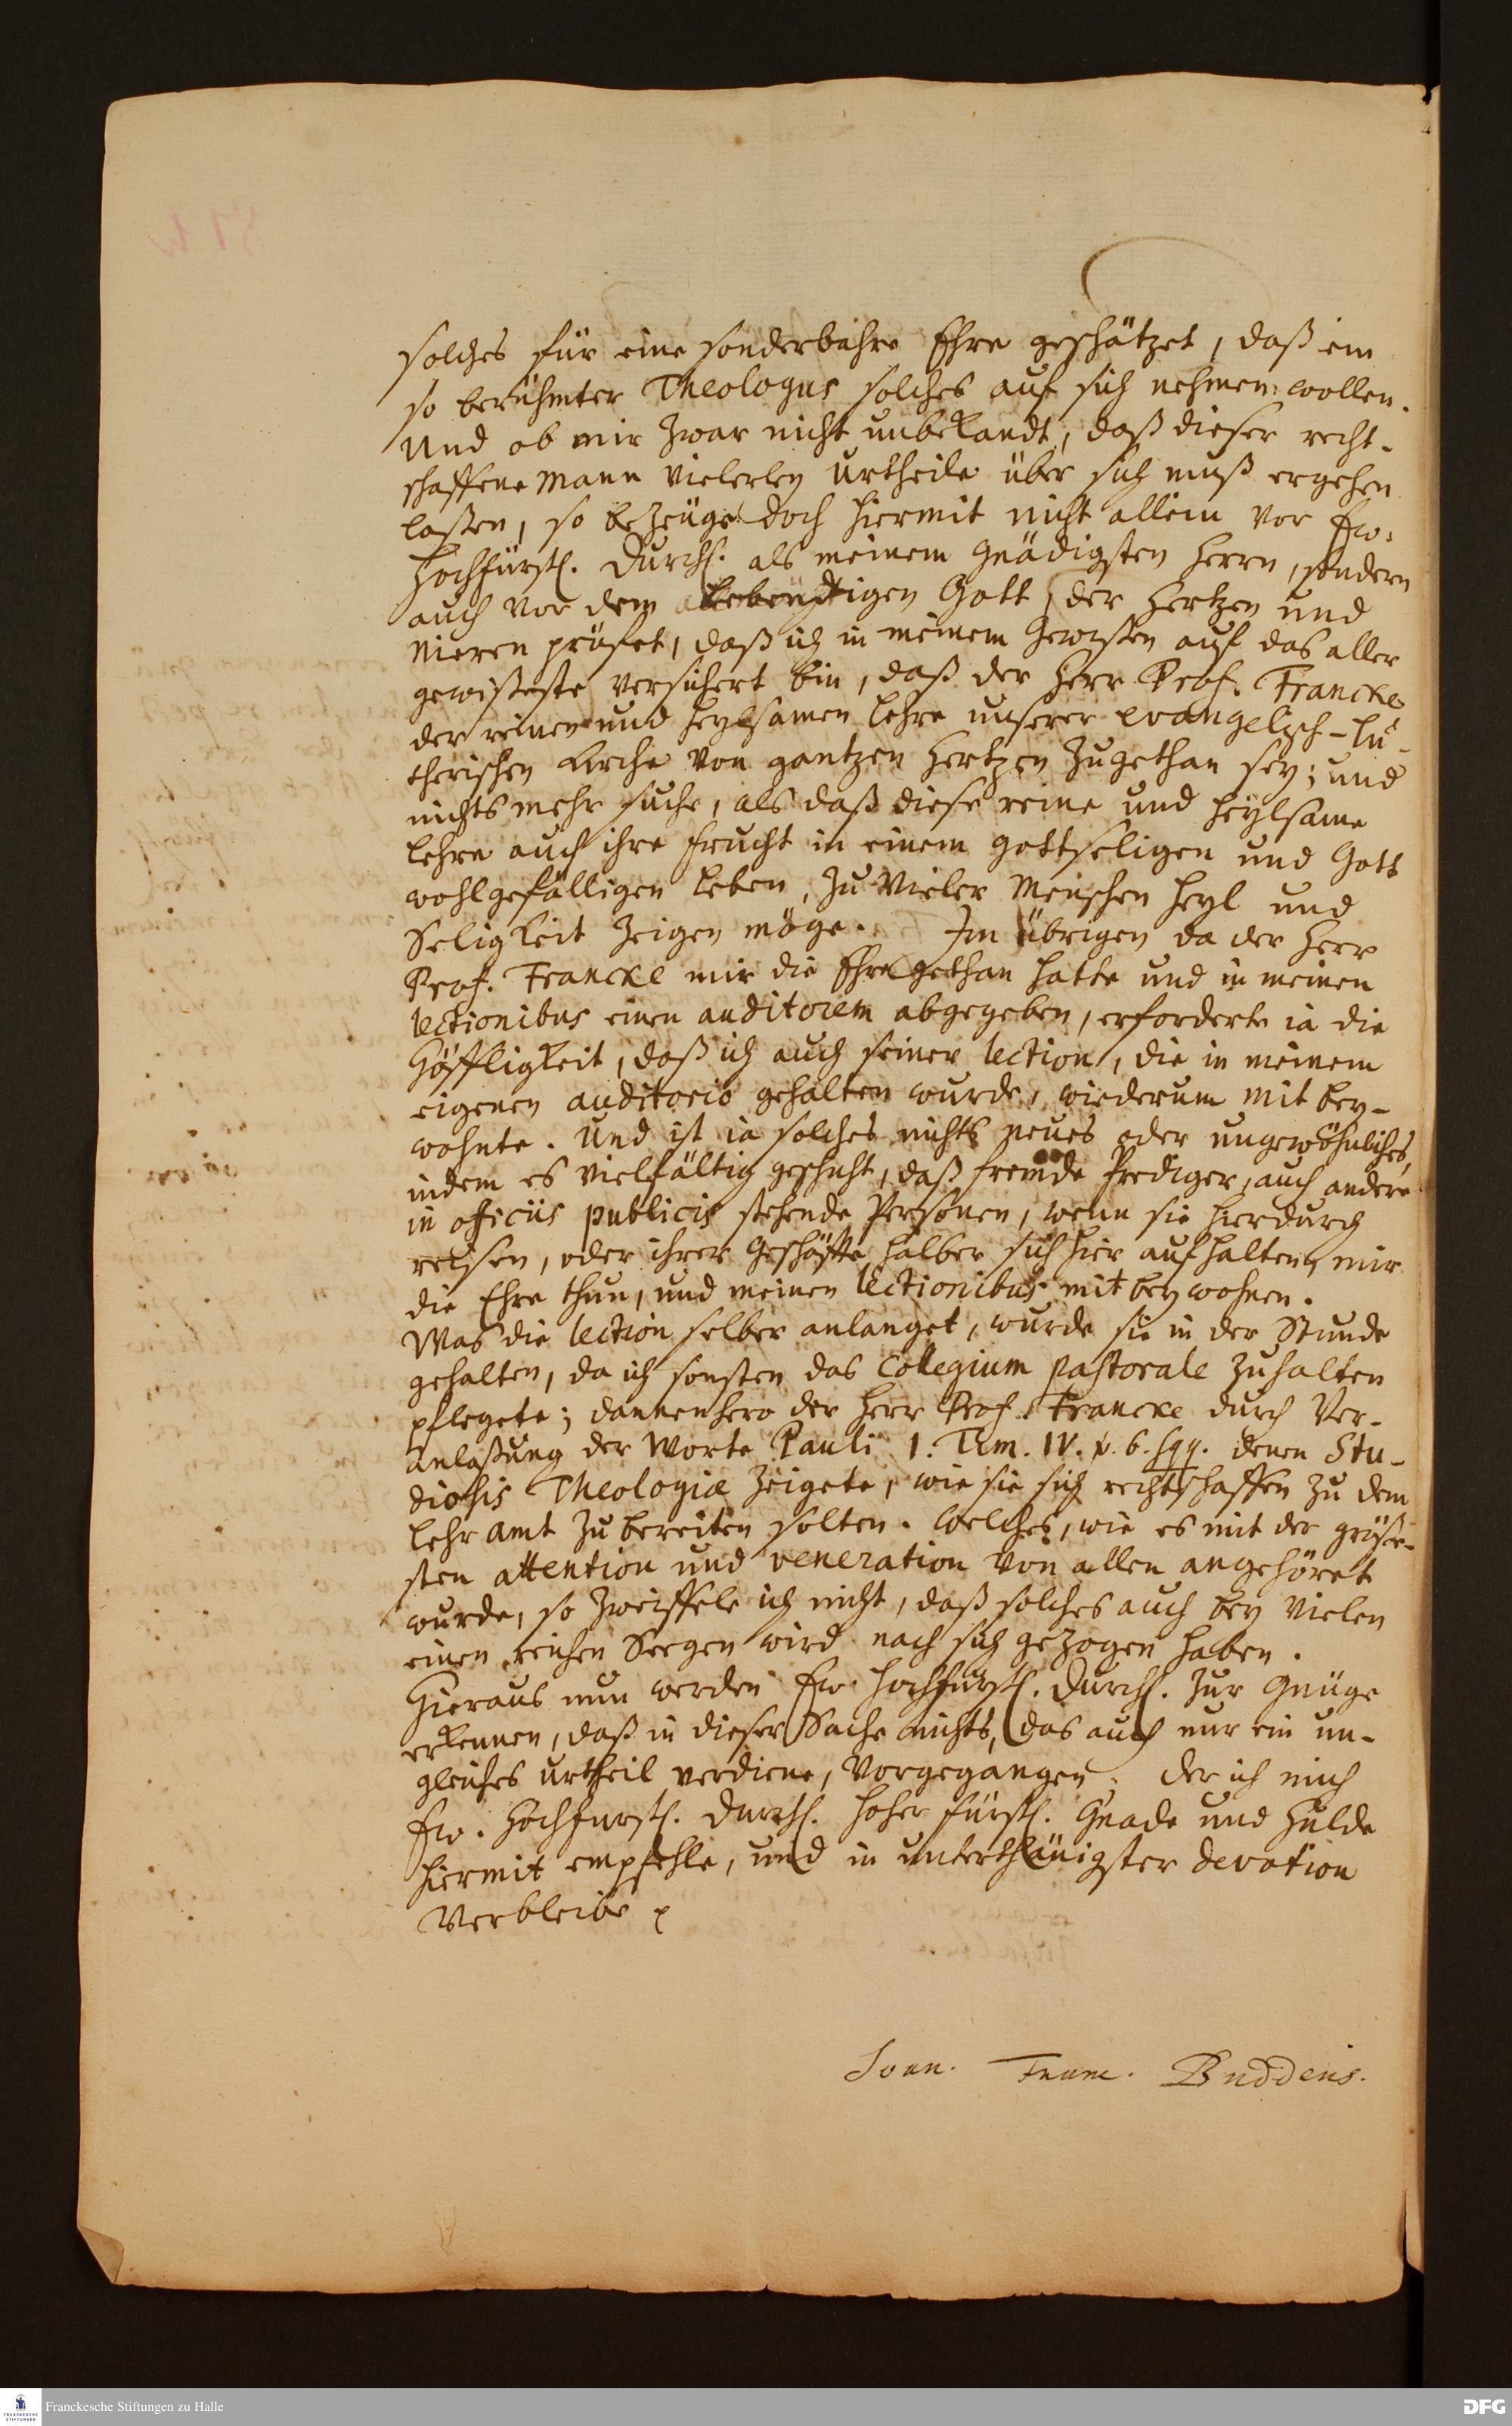 solches für eine sonderbahre Ehre geschätzet, daß ein
so berühmter Theologus solches auf sich nehmen wollen.
Und ob mir zwar nicht unbekandt, daß dieser recht-
schaffene Mann vielerley Urtheile über sich muß ergehen
laßen, so bezeüge doch hiermit nicht allein vor Ew.
Hochfürstl. Durchl. als meinem Gnädigsten Herrn, sondern
auch vor dem Gott, der Hertzen und
Nieren prüfet, daß ich in meinem Gewißen auf das aller
gewißeste versichert bin, daß der Herr Prof. Francke
der reinen und heylsamen Lehre unserer evangelisch-lu-
therischen Kirche von gantzen Hertzen zugethan sey; und
nichts mehr suche, als daß diese reine und heylsame
Lehre auch ihre Frucht in einem gottseligen und Gott
wohlgefälligen Leben, zu vieler Menschen Heyl und
Seligkeit zeigen möge. Im übrigen da der Herr
Prof. Francke mir die Ehre gethan hatte und in meinen
lectionibus einen auditorem abgegeben, erforderte ia die
Höffligkeit, daß ich auch seiner lection, die in meinem
eigenen auditorio gehalten wurde, wiederum mit bey-
wohnte. Und ist ia solches nichts neues oder ungewöhnliches,
indem es vielfältig geschicht, daß fremde Prediger, auch andere
in officiis publicis stehende Personen, wenn sie hierdurch
reisen, oder ihrer Geschäffte halber sich hier aufhalten, mir
die Ehre thun, und meinen lectionibus mit beywohnen.
Was die lection selber anlanget, wurde sie in der Stunde
gehalten, da ich sonsten das Collegium pastorale zuhalten
pflegete; dannenhero der Herr Prof. Francke durch Ver-
anlaßung der Worte Pauli 1. Tim. IV. v. 6. sqq. denen Stu-
diosis Theologiæ zeigete, wie sie sich rechtschaffen zu dem
Lehr amt zu bereiten solten. Welches, wie es mit der größe-
sten attention und veneration von allen angehöret
wurde, so zweiffele ich nicht, daß solches auch bey vielen
einen reichen Seegen wird nach sich gezogen haben.
Hieraus nun werden Ew. Hochfürstl. Durchl. zur Gnüge
erkennen, daß in dieser Sache nichts, das auch nur ein un-
gleiches Urtheil verdiene, vorgegangen. Der ich mich
Ew. Hochfürstl. Durchl. hoher fürstl. Gnade und Hulde
hiermit empfehle, und in unterthänigster devotion
verbleibe
Ioan. Franc. Buddeus.
Franckesche Stiftungen zu Halle
DFG